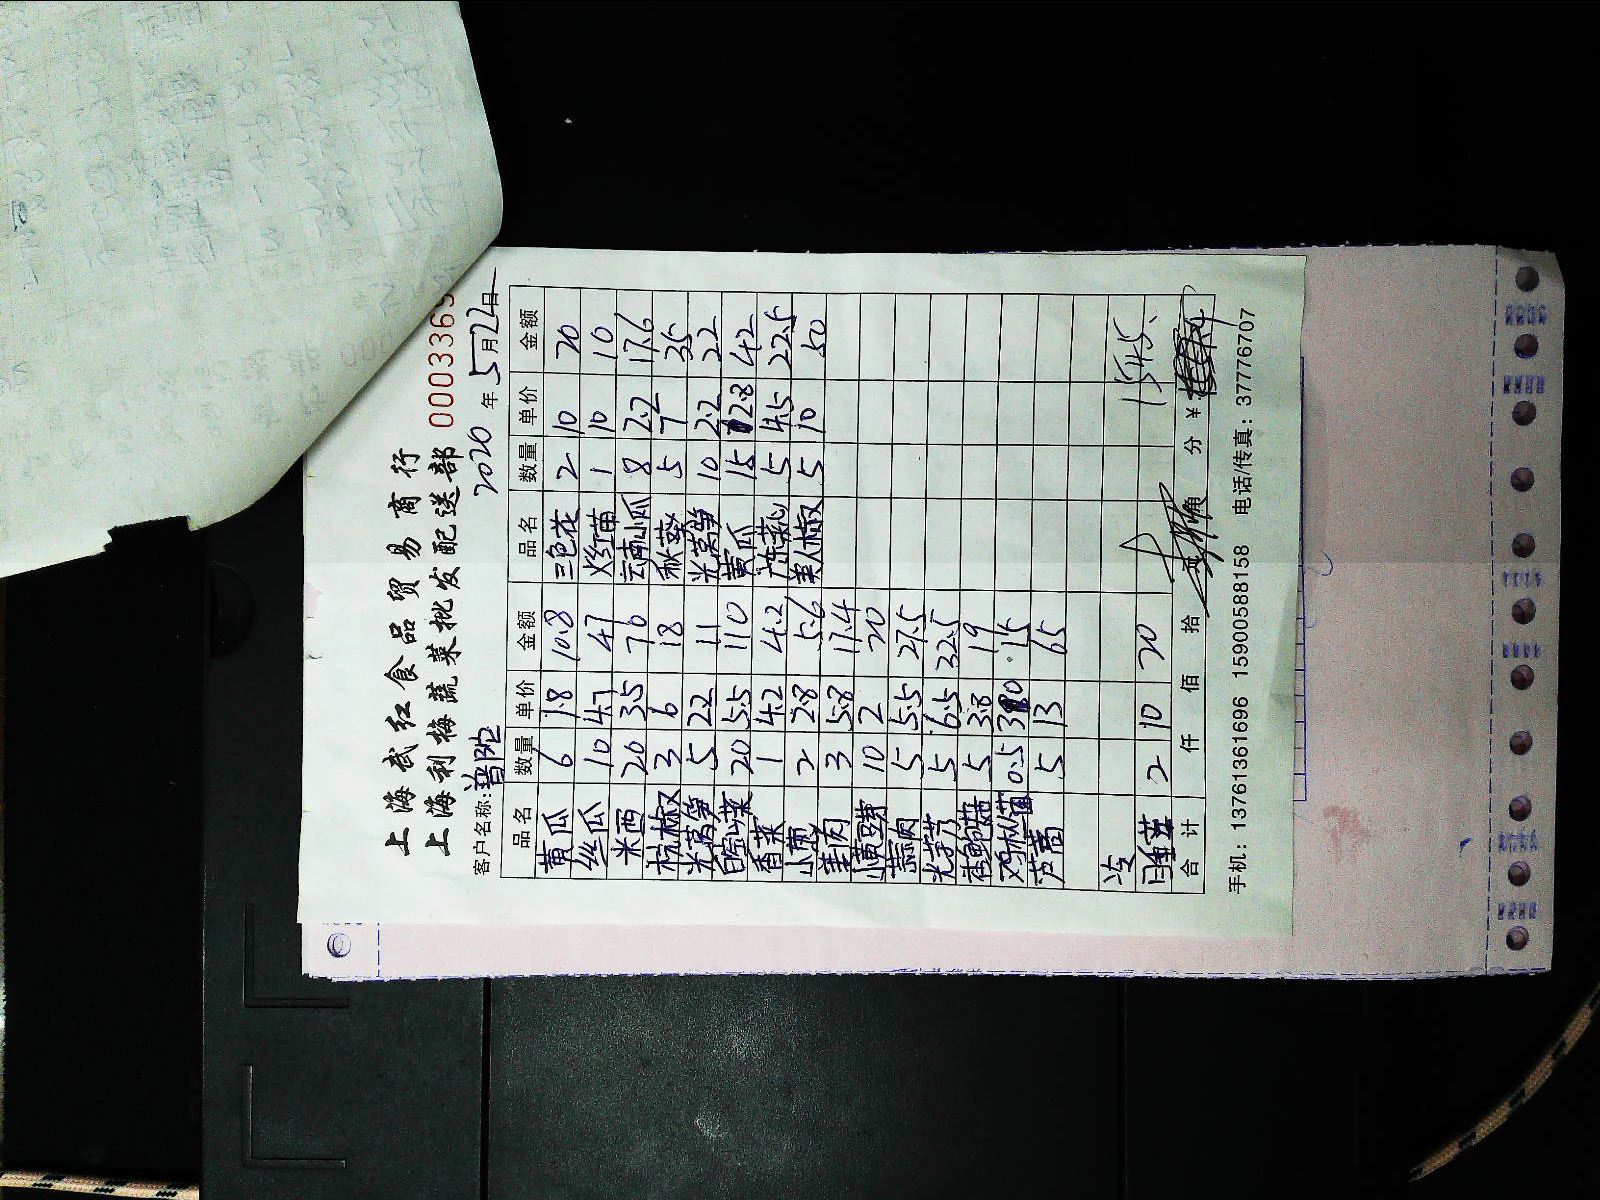 上海武红食品贸易商行
上海利梅蔬菜批发配送部 0003369
客户名称: 普陀 2020年5月22日
品名 数量 单价 金额 品名 数量 单价 金额
黄瓜 6 1.8 10.8 三色花 2 10 20
丝瓜 10 4.7 47 火红苗 1 10 10
米西 20 3.5 70 云南小瓜 8 2.2 17.6
杭椒 3 6 18 秋葵 5 7 35
光莴笋 5 2.2 11 光莴笋 10 2.2 22
20 5.5 110 黄瓜 15 2.8 42
香菜 1 4.2 4.2 广东菜心 5 4.5 22.5
小葱 2 2.8 5.6 美人椒 5 10 50
姜肉 3 5.8 17.4
小黄豆芽 10 2 20
蒜肉 5 5.5 27.5
光芋艿 5 6.5 32.5
5 3.8 19
鸡枞菌 0.5 30 15
芦蒿 5 13 65
1545
2 10 20
合计 仟 佰 拾 元 角 分 ¥
手机: 13761361696 15900588158 电话/传真: 37776707